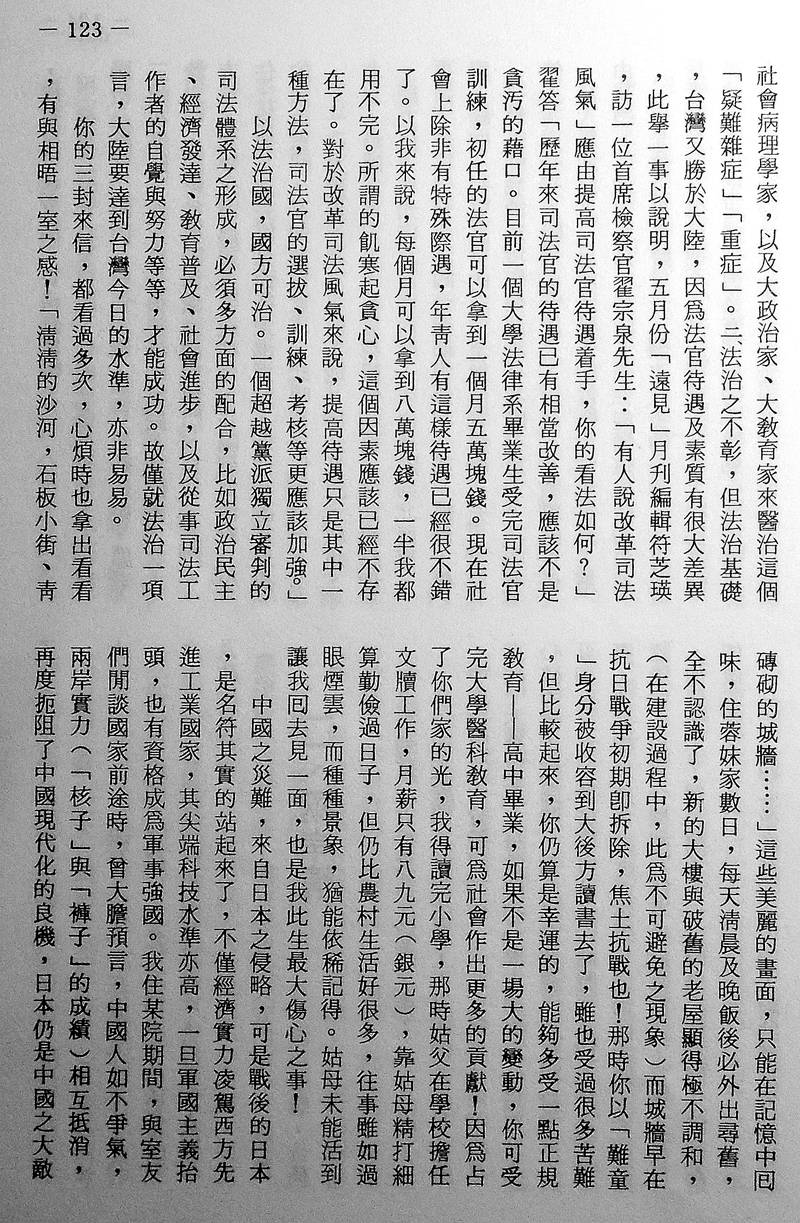 — 123 —
社會病理學家，以及大政治家、大教育家來醫治這個
「疑難雜症」「重症」。二、法治之不彰，但法治基礎
，台灣又勝於大陸，因爲法官待遇及素質有很大差異
，此舉一事以說明，五月份「遠見」月刊編輯符芝瑛
，訪一位首席檢察官翟宗泉先生：「有人說改革司法
風氣」應由提高司法官待遇着手，你的看法如何？」
翟答「歷年來司法官的待遇已有相當改善，應該不是
貪汚的藉口。目前一個大學法律系畢業生受完司法官
訓練，初任的法官可以拿到一個月五萬塊錢。現在社
會上除非有特殊際遇，年靑人有這樣待遇已經很不錯
了。以我來說，每個月可以拿到八萬塊錢，一半我都
用不完。所謂的飢寒起貪心，這個因素應該已經不存
在了。對於改革司法風氣來說，提高待遇只是其中一
種方法，司法官的選拔、訓練、考核等更應該加強。」
以法治國，國方可治。一個超越黨派獨立審判的
司法體系之形成，必須多方面的配合，比如政治民主
、經濟發達、教育普及、社會進步，以及從事司法工
作者的自覺與努力等等，才能成功。故僅就法治一項
言，大陸要達到台灣今日的水準，亦非易易。
你的三封來信，都看過多次，心煩時也拿出看看
，有與相晤一室之感！「淸淸的沙河，石板小街、靑
磚砌的城牆……」這些美麗的畫面，只能在記憶中囘
味，住蓉妹家數日，每天淸晨及晚飯後必外出尋舊，
全不認識了，新的大樓與破舊的老屋顯得極不調和，
（在建設過程中，此爲不可避免之現象）而城牆早在
抗日戰爭初期卽拆除，焦土抗戰也！那時你以「難童
」身分被收容到大後方讀書去了，雖也受過很多苦難
，但比較起來，你仍算是幸運的，能夠多受一點正規
教育——高中畢業，如果不是一場大的變動，你可受
完大學醫科教育，可爲社會作出更多的貢獻！因爲占
了你們家的光，我得讀完小學，那時姑父在學校擔任
文牘工作，月薪只有八九元（銀元），靠姑母精打細
算勤儉過日子，但仍比農村生活好很多，往事雖如過
眼煙雲，而種種景象，猶能依稀記得。姑母未能活到
讓我囘去見一面，也是我此生最大傷心之事！
中國之災難，來自日本之侵略，可是戰後的日本
，是名符其實的站起來了，不僅經濟實力凌駕西方先
進工業國家，其尖端科技水準亦高，一旦軍國主義抬
頭，也有資格成爲軍事強國。我住某院期間，與室友
們閒談國家前途時，曾大膽預言，中國人如不爭氣，
兩岸實力（「核子」與「褲子」的成績）相互抵消，
再度扼阻了中國現代化的良機，日本仍是中國之大敵